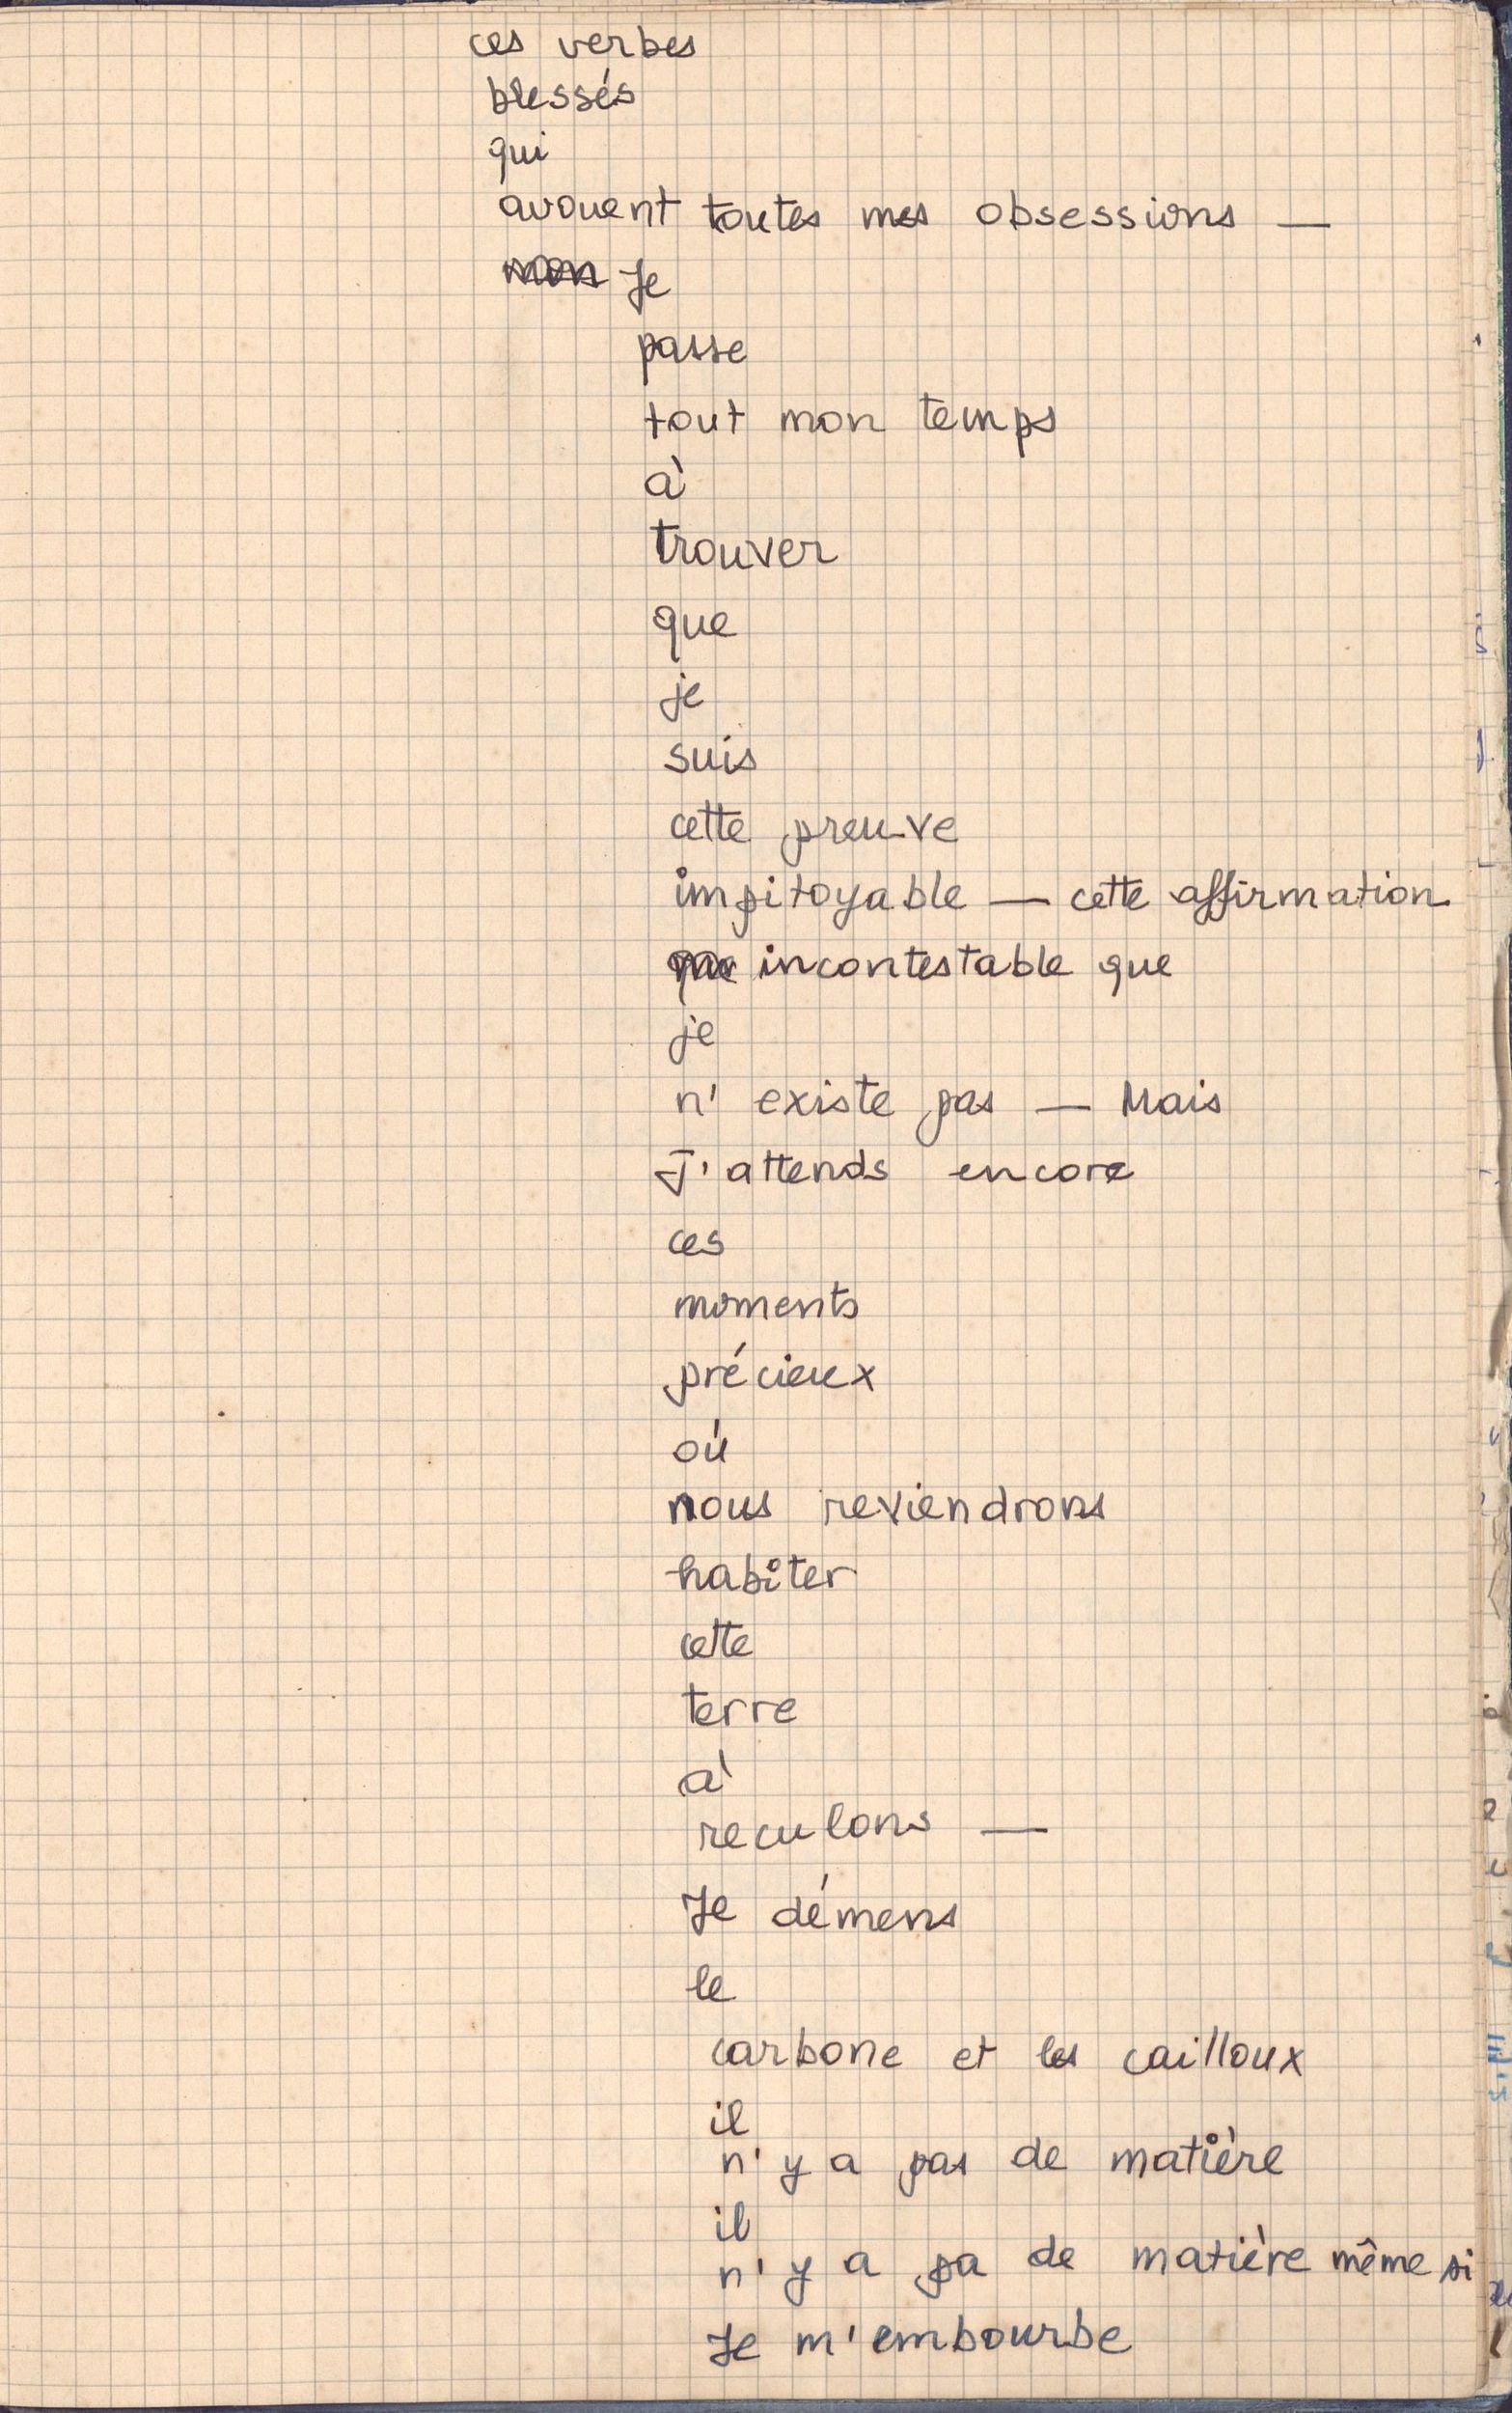 ces verbes
blessés
qui
avouent toutes mes obsessions —
mon Je
passe
tout mon temps
à
trouver
que
je
suis
cette preuve
impitoyable — cette affirmation
que incontestable que
je
n'existe pas — Mais
J'attends encore
ces
moments
précieux
où
nous reviendrons
habiter
cette
terre
à
reculons —
Je démens
le
carbone et les cailloux
il
n'y a pas de matière
il
n'y a pa de matière même si
Je m'embourbe